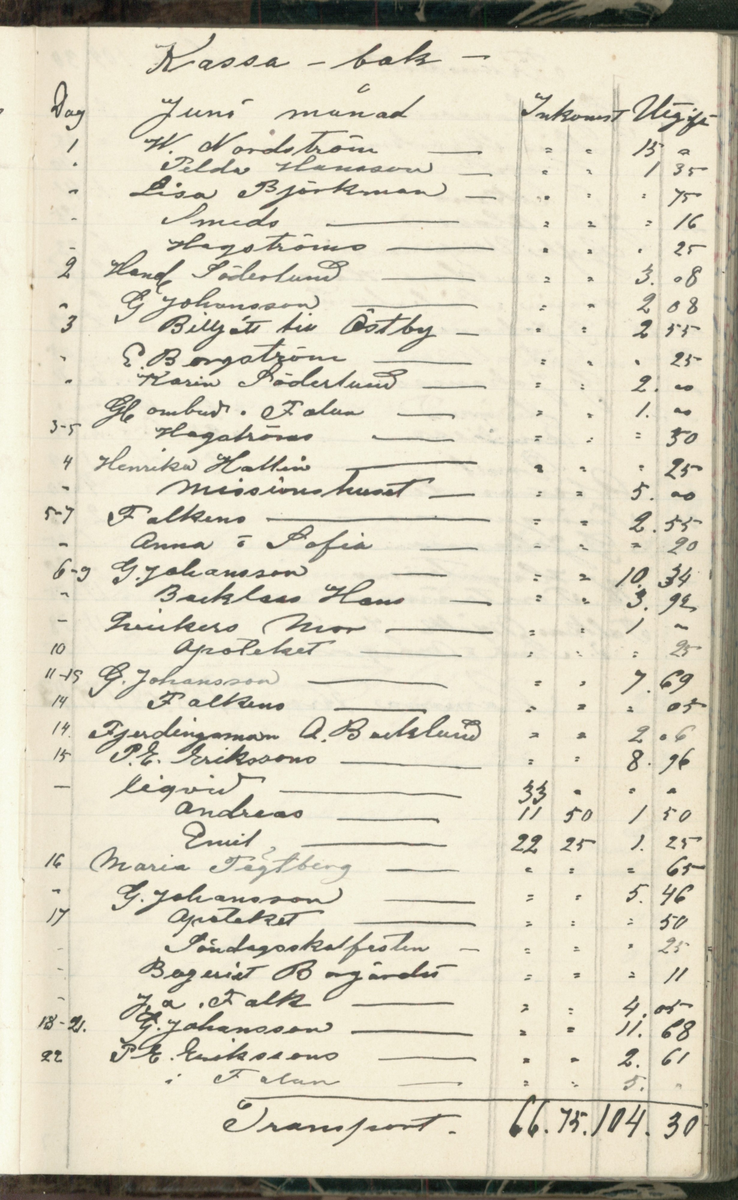 Kassa - bok -
Dag Juni månad Inkomst Utgift
1 W. Nordström — " " 15 "
" Pelda Hansson — " " 1 35
" Lisa Björkman — " " " 75
" Smeds — " " " 16
" Hagströms — " " " 25
2 Hand Söderlund — " " 3. 08
" G Johansson — " " 2 08
3 Billjett till Östby — " " 2 55
" E. Borgström — " " " 25
" Karin Söderlund — " " 2. 00
" ombud i Falun — " " 1. 00
3-5 Hagströms — " " " 50
4 Henrika Hallin — " " " 25
" Missionshuset — " " 5. 00
5-7 Falkens — " " 2. 55
" Anna o Sofia — " " " 20
6-9 G. Johansson — " " 10. 34
" Backlaas Hans — " " 3. 92
" Mor — " " 1 "
10 Apoteket — " " " 25
11-15 G. Johansson — " " 7. 69
14 Falkens — " " " 05
14. Fjerdingsman A. Backlund " " 2 06
15 P. E. Erikssons — " " 8. 96
— liqvid — 33 " " "
Andreas — 11 50 1 50
Emil — 22 25 1. 25
16 Maria Tägtberg — " " " 65
" G. Johansson — " " 5. 46
17 Apoteket — " " " 50
" Söndagsskolfesten — " " " 25
" Bageriet Borgärdet " " " 11
" J. a. Falk — " " 4. 05
18-21. G. Johansson — " " 11. 68
22 P. E. Erikssons — " " 2. 61
i Falun — " " 5. "
Transport. 66. 75. 104. 30